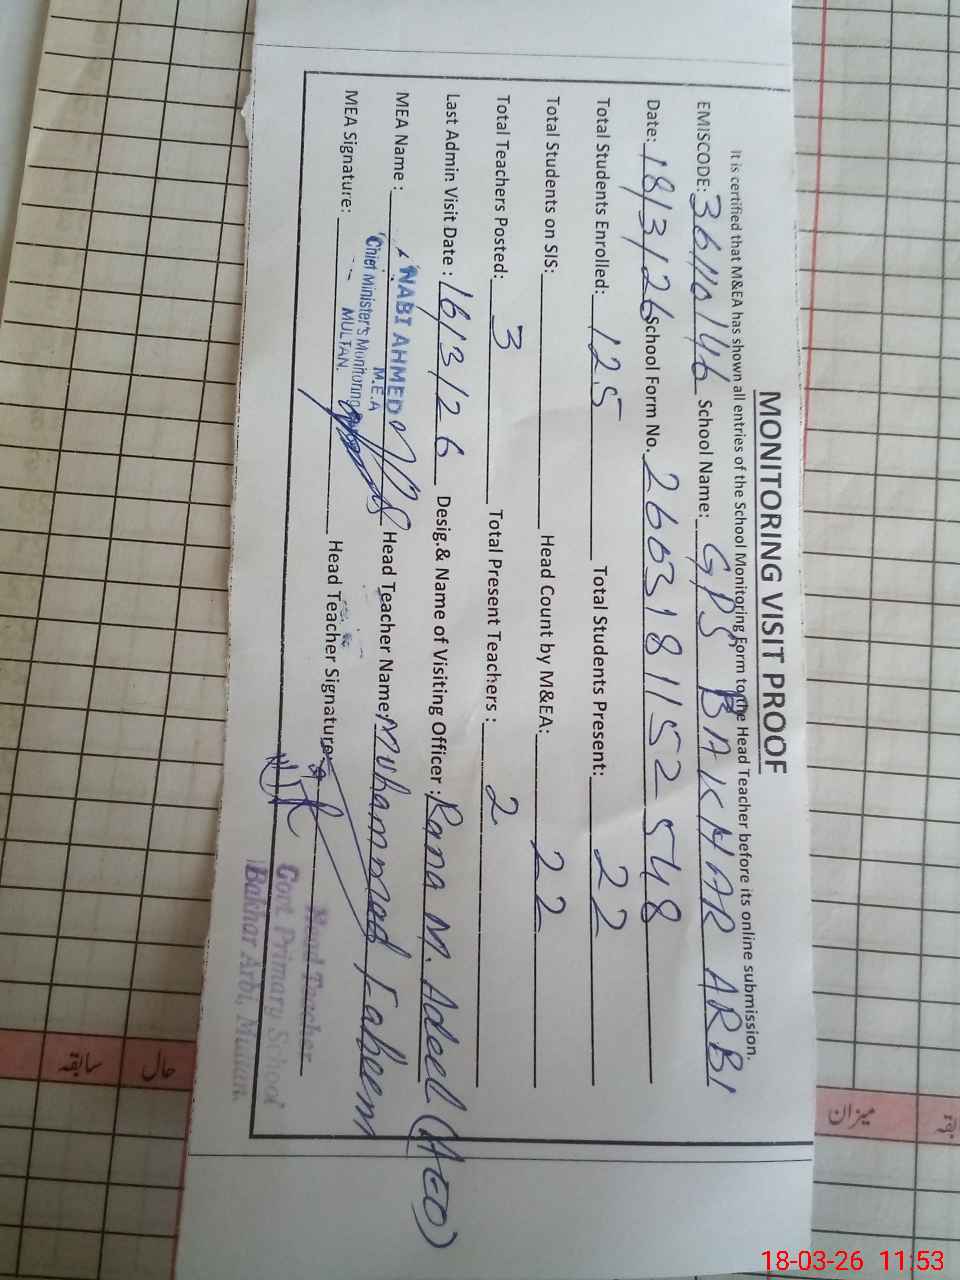 MONITORING VISIT PROOF
It is certified that M&EA has shown all entries of the School Monitoring Form to the Head Teacher before its online submission.
EMISCODE: 36110146 School Name: GPS BAKHAR ARBI
Date: 18/3/26 School Form No. 2663181152548
Total Students Enrolled: 125 Total Students Present: 22
Total Students on SIS: Head Count by M&EA: 22
Total Teachers Posted: 3 Total Present Teachers : 2
Last Admin Visit Date : 16/3/26 Desig.& Name of Visiting Officer : Rana M. Adeel (AEO)
MEA Name : NABI AHMED Head Teacher Name: Muhammad Faheem
M.E.A
Chief Minister's Monitoring
MULTAN.
MEA Signature: Head Teacher Signature:
Head Teacher
Govt Primary School
Bakhar Arbi, Multan.
سابقہ حال
میزان
18-03-26 11:53